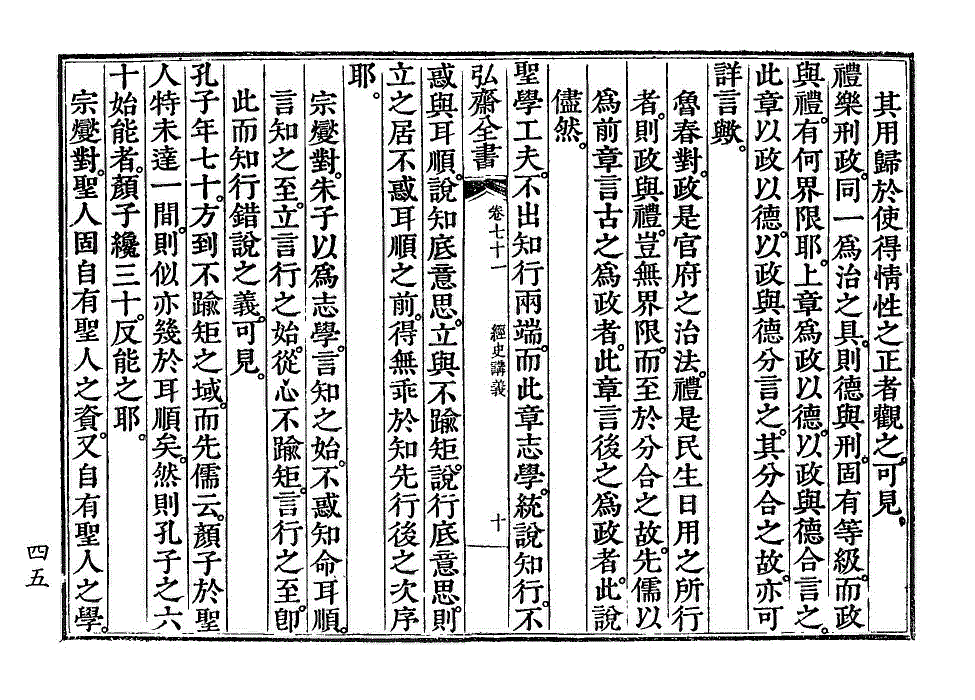 其用歸於使得情性之正者觀之。可見。
禮樂刑政。同一爲治之具。則德與刑。固有等級。而政
與禮。有何界限耶。上章爲政以德。以政與德合言之。
此章以政以德。以政與德分言之。其分合之故。亦可
詳言歟。
魯春對。政是官府之治法。禮是民生日用之所行
者。則政與禮。豈無界限。而至於分合之故。先儒以
爲前章言古之爲政者。此章言後之爲政者。此說
儘然。
聖學工夫。不出知行兩端。而此章志學。統說知行。不
弘齋全書 卷七十一 經史講義 十
惑與耳順。說知底意思。立與不踰矩。說行底意思。則
立之居不惑耳順之前。得無乖於知先行後之次序
耶。
宗燮對。朱子以爲志學。言知之始。不惑知命耳順。
言知之至。立言行之始。從心不踰矩。言行之至。卽
此而知行錯說之義。可見。
孔子年七十。方到不踰矩之域。而先儒云。顏子於聖
人特未達一間。則似亦幾於耳順矣。然則孔子之六
十始能者。顏子纔三十。反能之耶。
宗燮對。聖人固自有聖人之資。又自有聖人之學。
四五